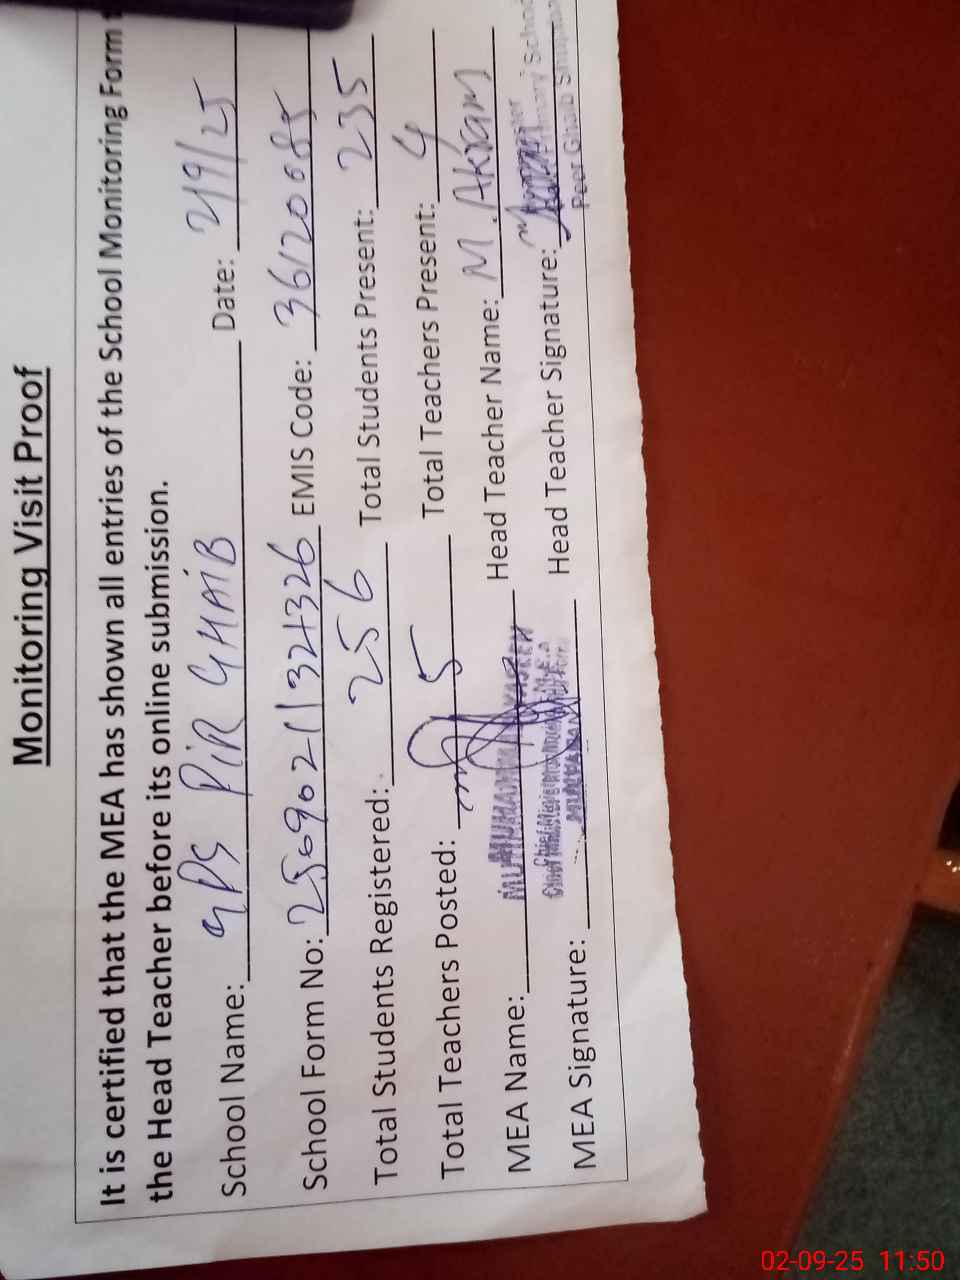 Monitoring Visit Proof
It is certified that the MEA has shown all entries of the School Monitoring Form
the Head Teacher before its online submission.
School Name: GPS PIR GHAIB Date: 2/9/25
School Form No: 25090211321326 EMIS Code: 36120085
Total Students Registered: 256 Total Students Present: 235
Total Teachers Posted: 5 Total Teachers Present: 4
MEA Name: Head Teacher Name: M. Akram
MEA Signature: Head Teacher Signature:
Primary School
Peer Ghaib
02-09-25 11:50